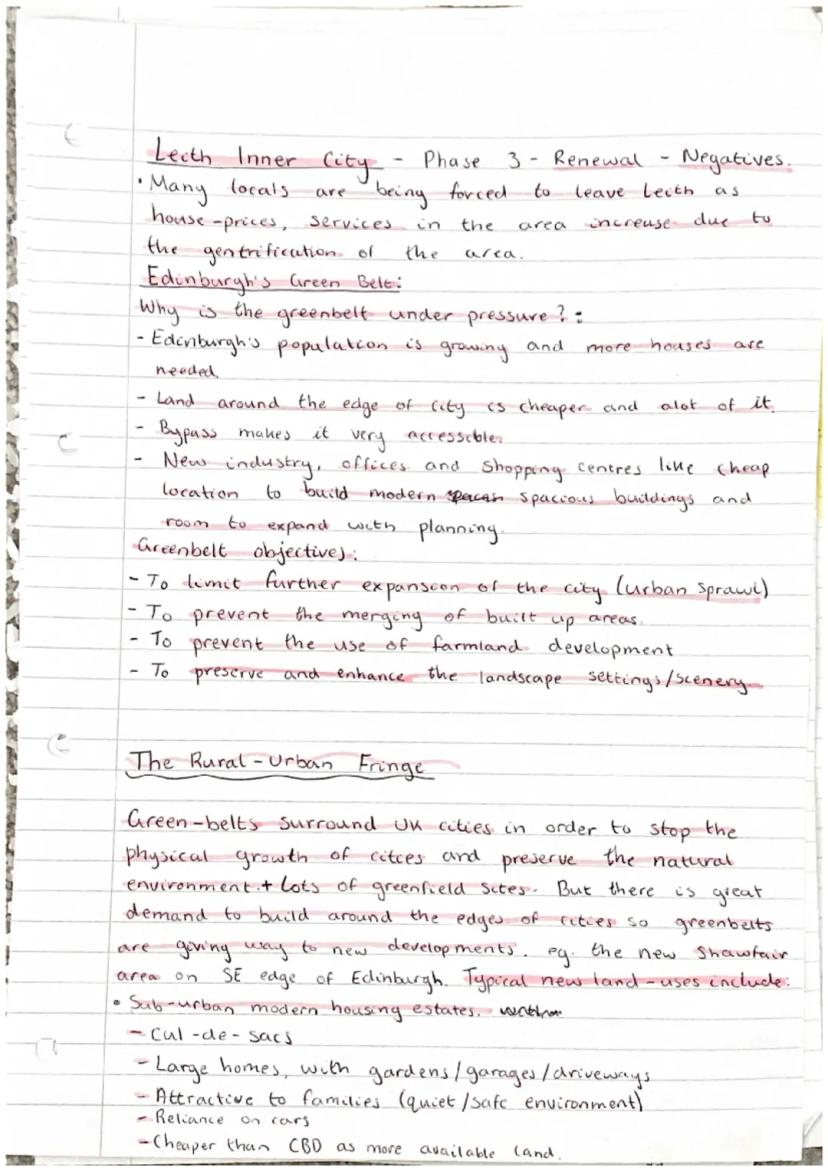 Leith Inner City - Phase 3 - Renewal - Negatives.
• Many locals are being forced to leave Leith as
house-prices, services in the area increase due to
the gentrification of the area.
Edinburgh's Green Belt:
Why is the greenbelt under pressure? :
- Edinburgh's population is growing and more houses are
needed.
- Land around the edge of city is cheaper and alot of it.
- Bypass makes it very accessible.
- New industry, offices and shopping centres like cheap
location to build modern spacious buildings and
room to expand with planning.
Greenbelt objectives:
- To limit further expansion of the city (urban sprawl)
- To prevent the merging of built up areas.
- To prevent the use of farmland development
- To preserve and enhance the landscape settings/scenery
The Rural-Urban Fringe
Green-belts surround UK cities in order to stop the
physical growth of cities and preserve the natural
environment + Lots of greenfield sites. But there is great
demand to build around the edges of cities so greenbelts
are giving way to new developments. eg. the new Shawfair
area on SE edge of Edinburgh. Typical new land-uses include:
• Sub-urban modern housing estates.
- Cul-de-sacs
- Large homes, with gardens/garages/driveways
- Attractive to families (quiet/safe environment)
- Reliance on cars
- Cheaper than CBD as more available land.